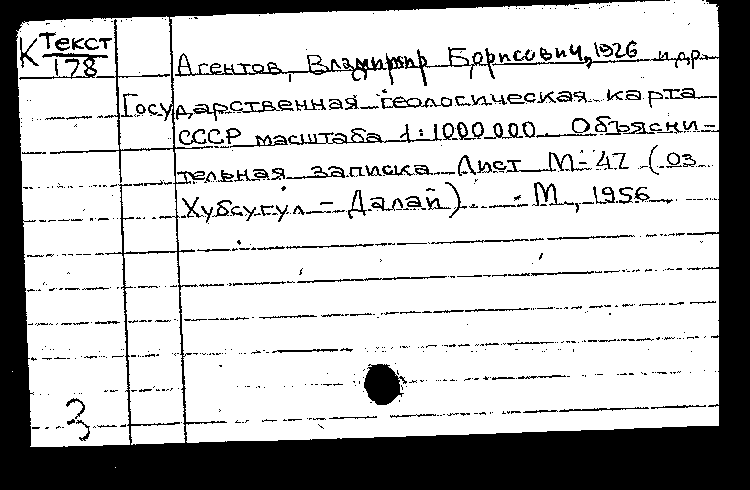 К Текст
178
Агентов, Владимир Борисович, 1926 и др.
Государственная геологическая карта
СССР масштаба 1:1000000. Объясни-
тельная записка Лист М-47 (оз
Хубсугул - Далай). - М, 1956
3